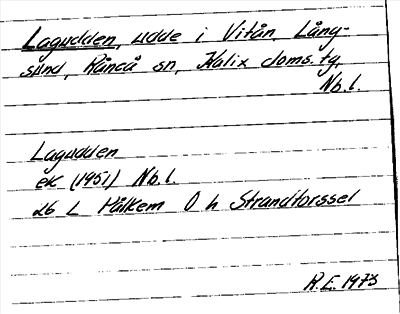 Lagudden, udde i Vitån, Lång-
sund, Råneå sn, Kalix doms. tg,
Nb. l.
Lagudden
ek (1951) Nb. l.
26 L Pålkem O h Strandforssel
R.E. 1973